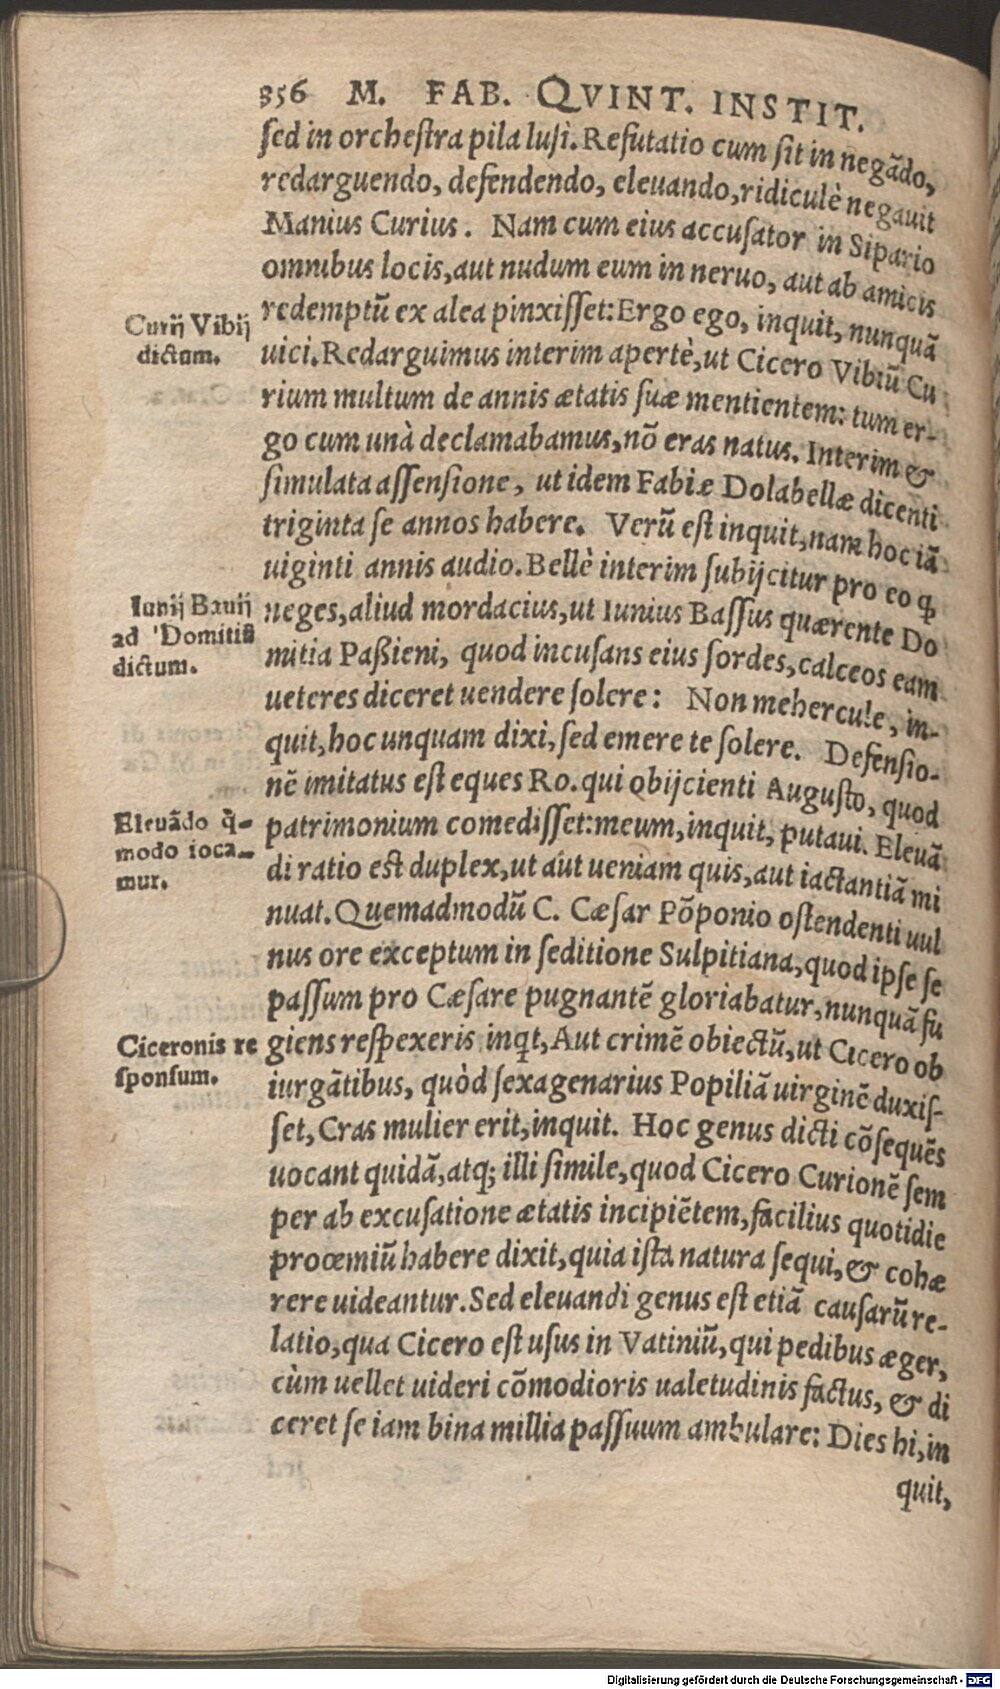 356 M. FAB. QVINT. INSTIT.
ſed in orcheſtra pila luſi. Refutatio cum ſit in negãdo,
redarguendo, defendendo, eleuando, ridiculè negauit
Manius Curius. Nam cum eius accuſator in Sipario
omnibus locis, aut nudum eum in neruo, aut ab amicis
redemptũ ex alea pinxiſſet: Ergo ego, inquit, nunquã
Curij Vibij
dictum.
uici. Redarguimus interim apertè, ut Cicero Vibiũ Cu
rium multum de annis ætatis ſuæ mentientem: tum er-
go cum unà declamabamus, nõ eras natus. Interim &
ſimulata aſſenſione, ut idem Fabiæ Dolabellæ dicenti
triginta ſe annos habere. Verũ eſt inquit, nam hoc iã
uiginti annis audio. Bellè interim ſubijcitur pro eo ꝙ
Iunij Bauij
ad Domitiã
dictum.
neges, aliud mordacius, ut Iunius Baſſus quærente Do
mitia Paßieni, quod incuſans eius ſordes, calceos eam
ueteres diceret uendere ſolere: Non mehercule, in-
quit, hoc unquam dixi, ſed emere te ſolere. Defenſio-
nẽ imitatus eſt eques Ro. qui obijcienti Auguſto, quod
Eleuãdo q̃-
modo ioca-
mur.
patrimonium comediſſet: meum, inquit, putaui. Eleuã
di ratio eſt duplex, ut aut ueniam quis, aut iactantiã mi
nuat. Quemadmodũ C. Cæſar Põponio oſtendenti uul
nus ore exceptum in ſeditione Sulpitiana, quod ipſe ſe
paſſum pro Cæſare pugnantẽ gloriabatur, nunquã fu
Ciceronis re
ſponſum.
giens reſpexeris inq̃t, Aut crimẽ obiectũ, ut Cicero ob
iurgãtibus, quòd ſexagenarius Popiliã uirginẽ duxiſ-
ſet, Cras mulier erit, inquit. Hoc genus dicti cõſequẽs
uocant quidã, atq; illi ſimile, quod Cicero Curionẽ ſem
per ab excuſatione ætatis incipiẽtem, facilius quotidie
proœmiũ habere dixit, quia iſta natura ſequi, & cohæ
rere uideantur. Sed eleuandi genus eſt etiã cauſarũ re-
latio, qua Cicero eſt uſus in Vatiniũ, qui pedibus æger,
cùm uellet uideri cõmodioris ualetudinis factus, & di
ceret ſe iam bina millia paſſuum ambulare: Dies hi, in
quit,
Digitalisierung gefördert durch die Deutsche Forschungsgemeinschaft - DFG